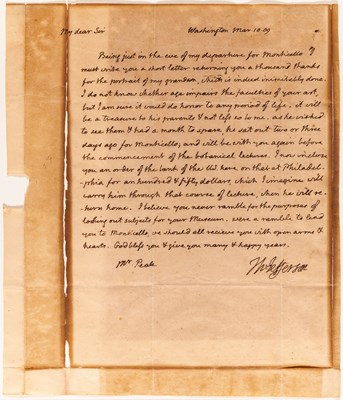 My dear Sir Washington Mar. 10. 09
Being just in the eve of my departure for Monticello I
must write you a short letter returning you a thousand thanks
for the portrait of my grandson, which is indeed inimitably done.
I do not know whether age impairs the faculties of your art,
but I am sure it would do honor to any period of life. it will
be a treasure to his parents & not less so to me. as he wished
to see them & had a month to spare, he set out two or three
days ago for Monticello, and will be with you again before
the commencement of the botanical lectures. I now inclose
you an order of the bank of the US. here on that at Philadel-
phia for an hundred & fifty dollars, which I imagine will
carry him through that course of lectures, when he will re-
turn home. I believe you never ramble for the purposes of
looking out subjects for your Museum. were a ramble to lead
you to Monticello, we should all recieve you with open arms &
hearts. God bless you & give you many & happy years.
Mr. Peale Th: Jefferson